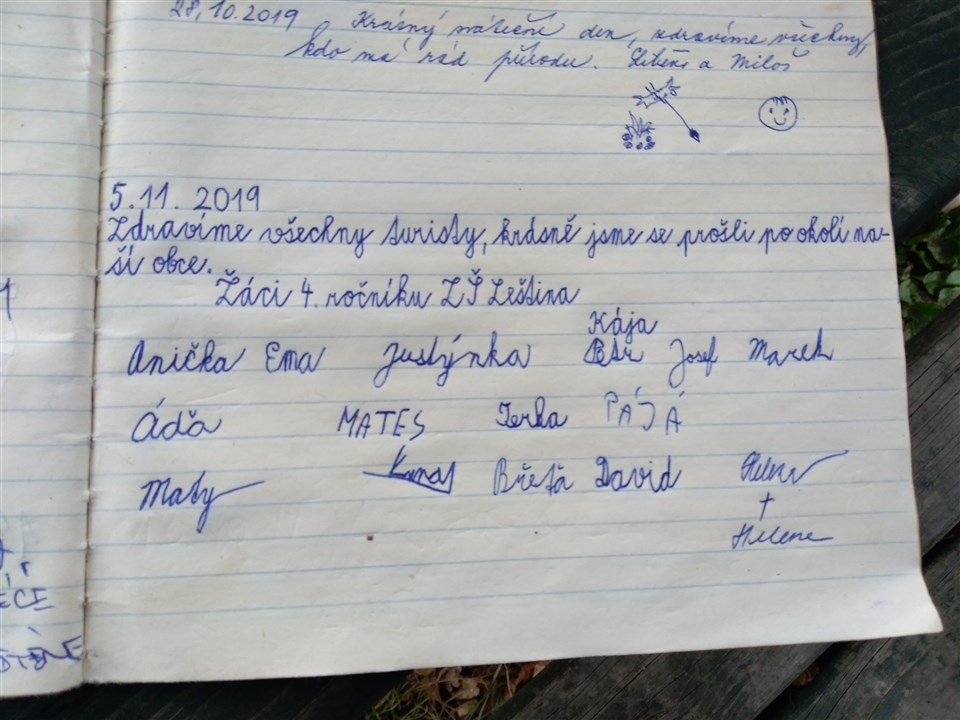 28.10.2019 Krásný sváteční den, zdravíme všechny,
kdo má rád přírodu. a Miloš
5.11. 2019
Zdravíme všechny turisty, krásně jsme se prošli po okolí na-
ší obce.
Žáci 4. ročníku ZŠ Leština
Kája
Anička Ema Justýnka Petr Josef Marek
Áďa MATES Terka PÁJÁ
Maty Břéťa David
+
Helena
ĚCE